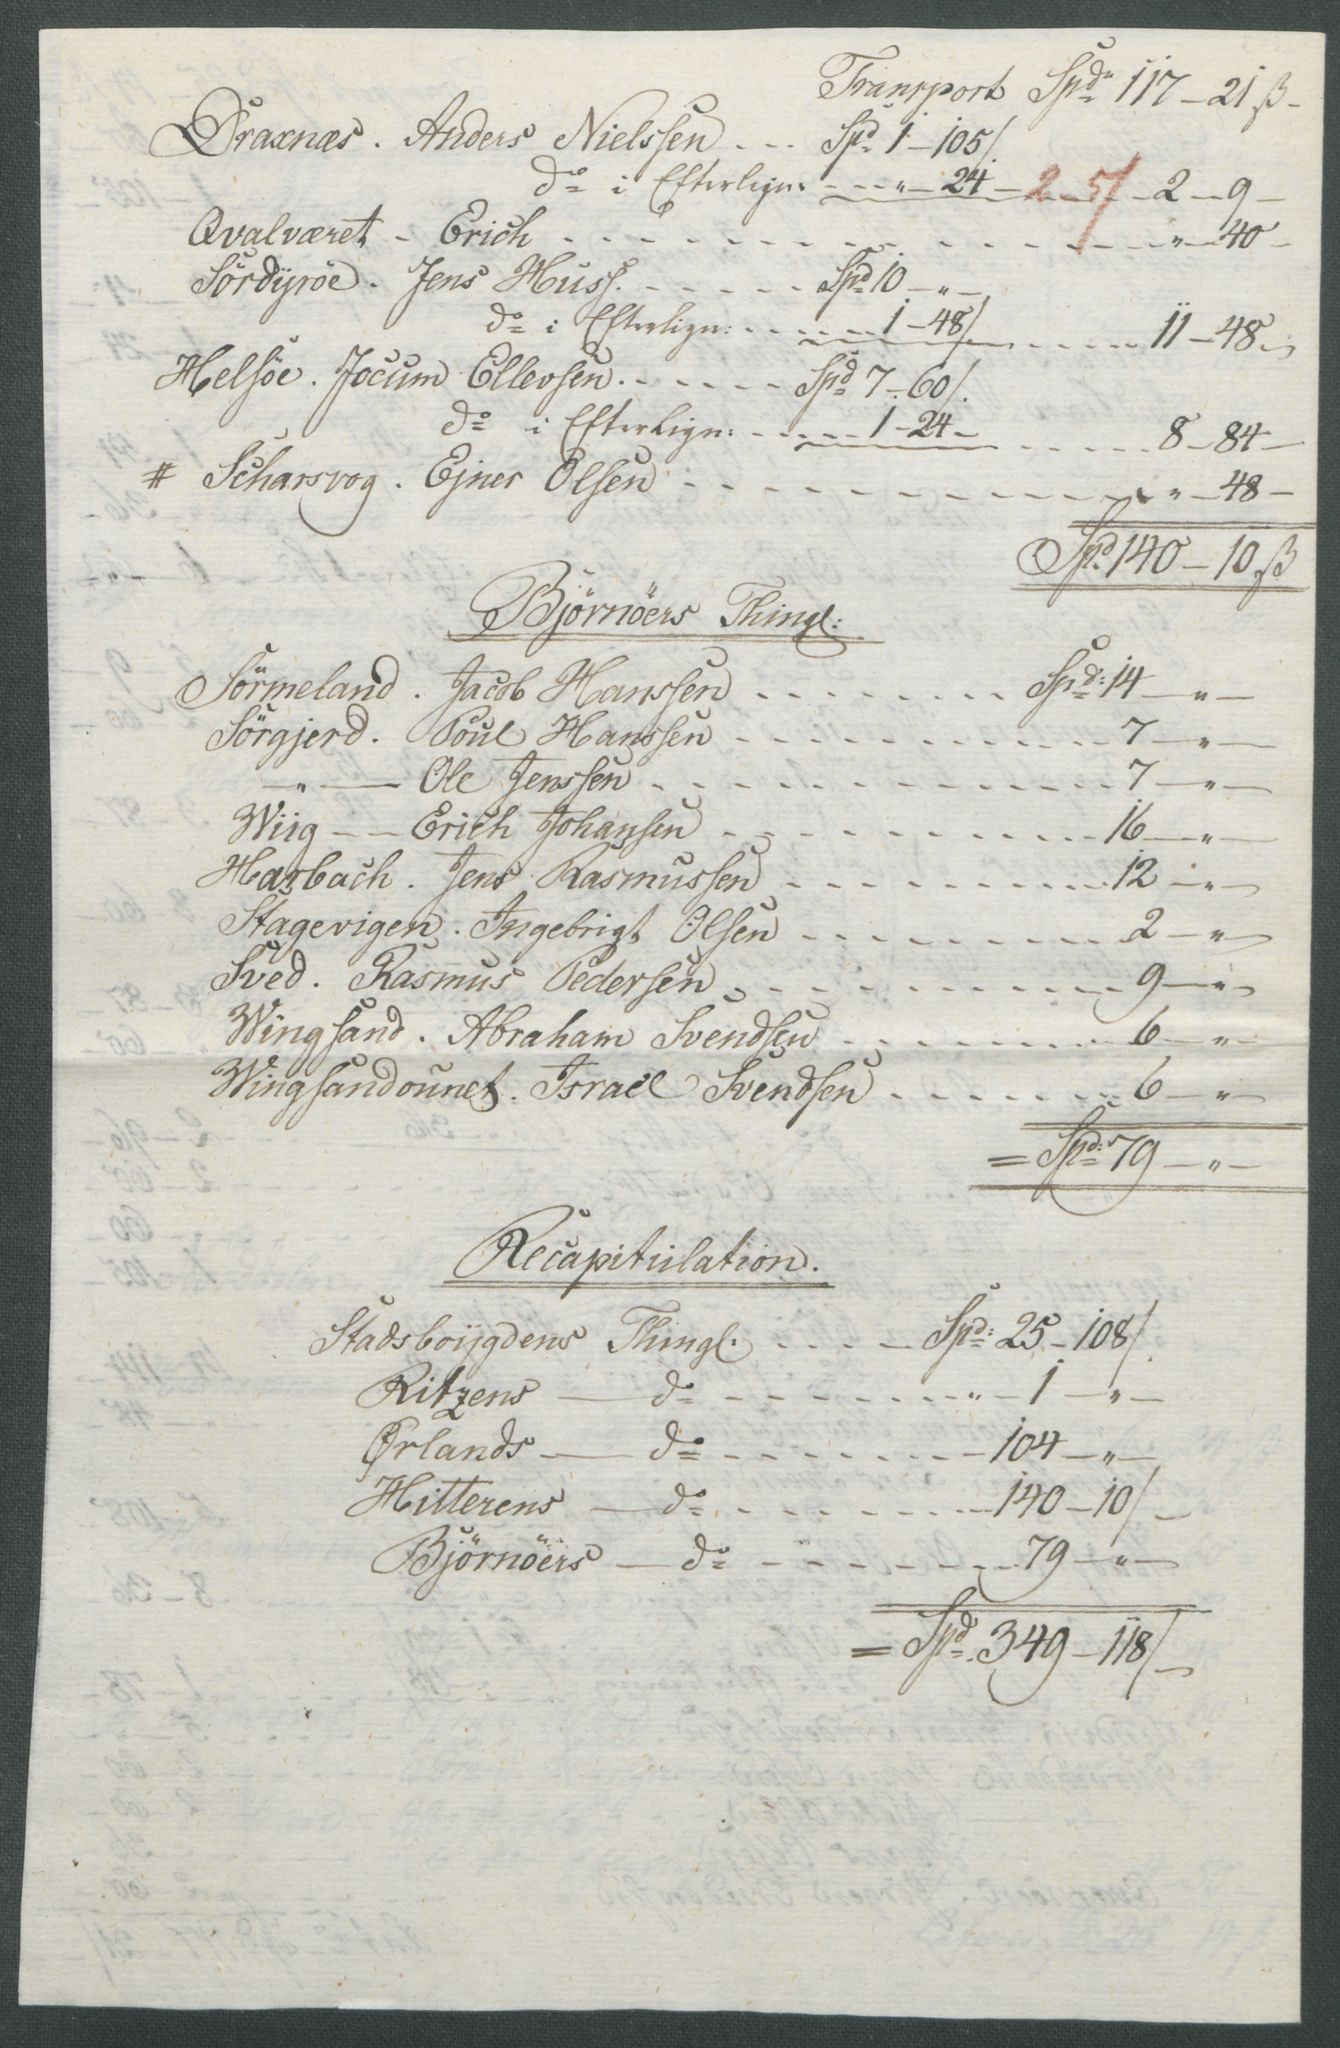 Transport Spd. 117 - 21 ß -
Draxnæs . Anders Nielssen - - - Spd 1 - 105/.
do i Efterlign: - - - " - 24 - 2 - 5/ - 2 - 9 -
Qvalværet - Erich - - - - - - - - - - " - 40 -
Sördÿröe . Jens Huss. - - - - - Spd 10 - " -
do i Efterlign: - - - - - 1 - 48/ - - - - - 11 - 48 -
Helsöe . Jocum Ellevsen. - - - - - Spd 7 - 60/.
do i Efterlign: - - - - - 1 - 24 - - - - - - 8 - 84 -
# Scharsvog . Ejner Olsen - - - - - - - - - - " - 48 -
Spd. 140 - 10 ß
Björnöers Thingl:
Sörmeland . Jacob Hanssen - - - - - - Spd: 14 - " -
Sörgjerd . Poul Hanssen - - - - - - - - 7 - " -
- " - Ole Jenssen - - - - - - - - - - 7 - " -
Wiig - - Erich Johansen - - - - - - - - 16 - " -
Harbach . Jens Rasmussen - - - - - - - 12 - " -
Stagevigen . Ingebrigt Olsen - - - - - - - 2 - " -
Sved . Rasmus Pedersen - - - - - - - - 9 - " -
Wingsand . Abraham Svendsen - - - - - - 6 - " -
Wingsandounet . Israel Svendsen - - - - - - 6 - " -
= Spd: 79 - " -
Recapitulation.
Stadsboÿgdens Thingl: - - - - Spd: 25 - 108/.
Ritzens - do - - - - - - - " - 1 - " -
Ørlands - do - - - - - - - 104 - " -
Hitterens - do - - - - - - - 140 - 10/ -
Björnöers - do - - - - - - - 79 - " -
= Spd. 349 - 118/ -